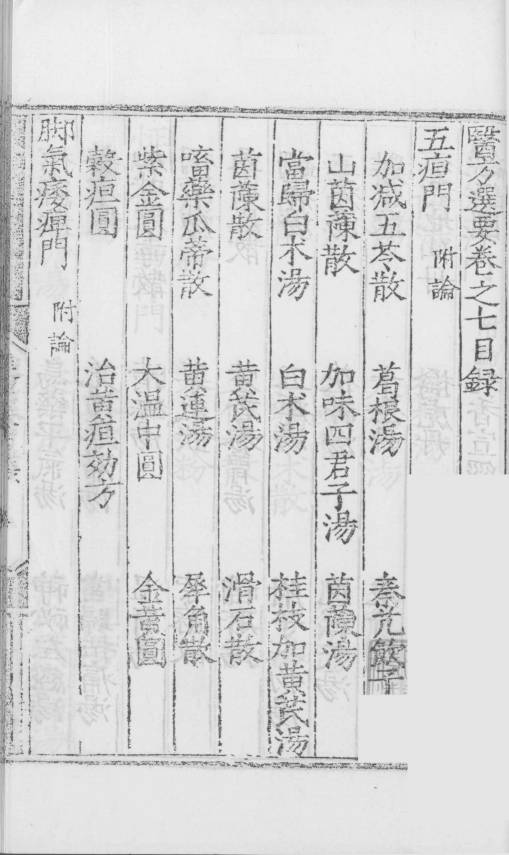 醫方選要卷之七目録
五疸門 附論
加减五苓散 葛根湯 秦艽飲子
山茵蔯散 加味四君子湯 茵蔯湯
當歸白术湯 白术湯 桂枝加黄芪湯
茵蔯散 黄芪湯 滑石散
㗜藥瓜蒂散 黄連湯 犀角散
紫金圓 大温中圓 金黄圓
穀疸圓 治黄疸効方
脚氣痿痺門 附論